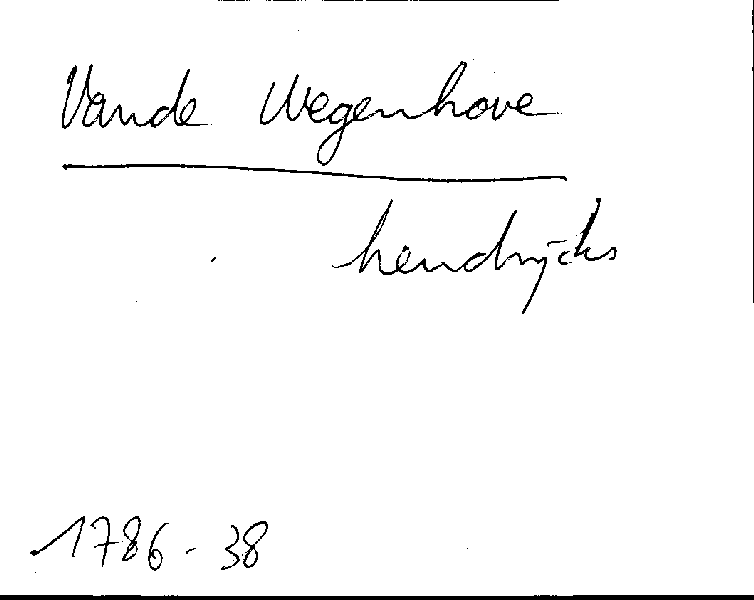 Vande Wegenhove
hendrijcks
1786 - 38